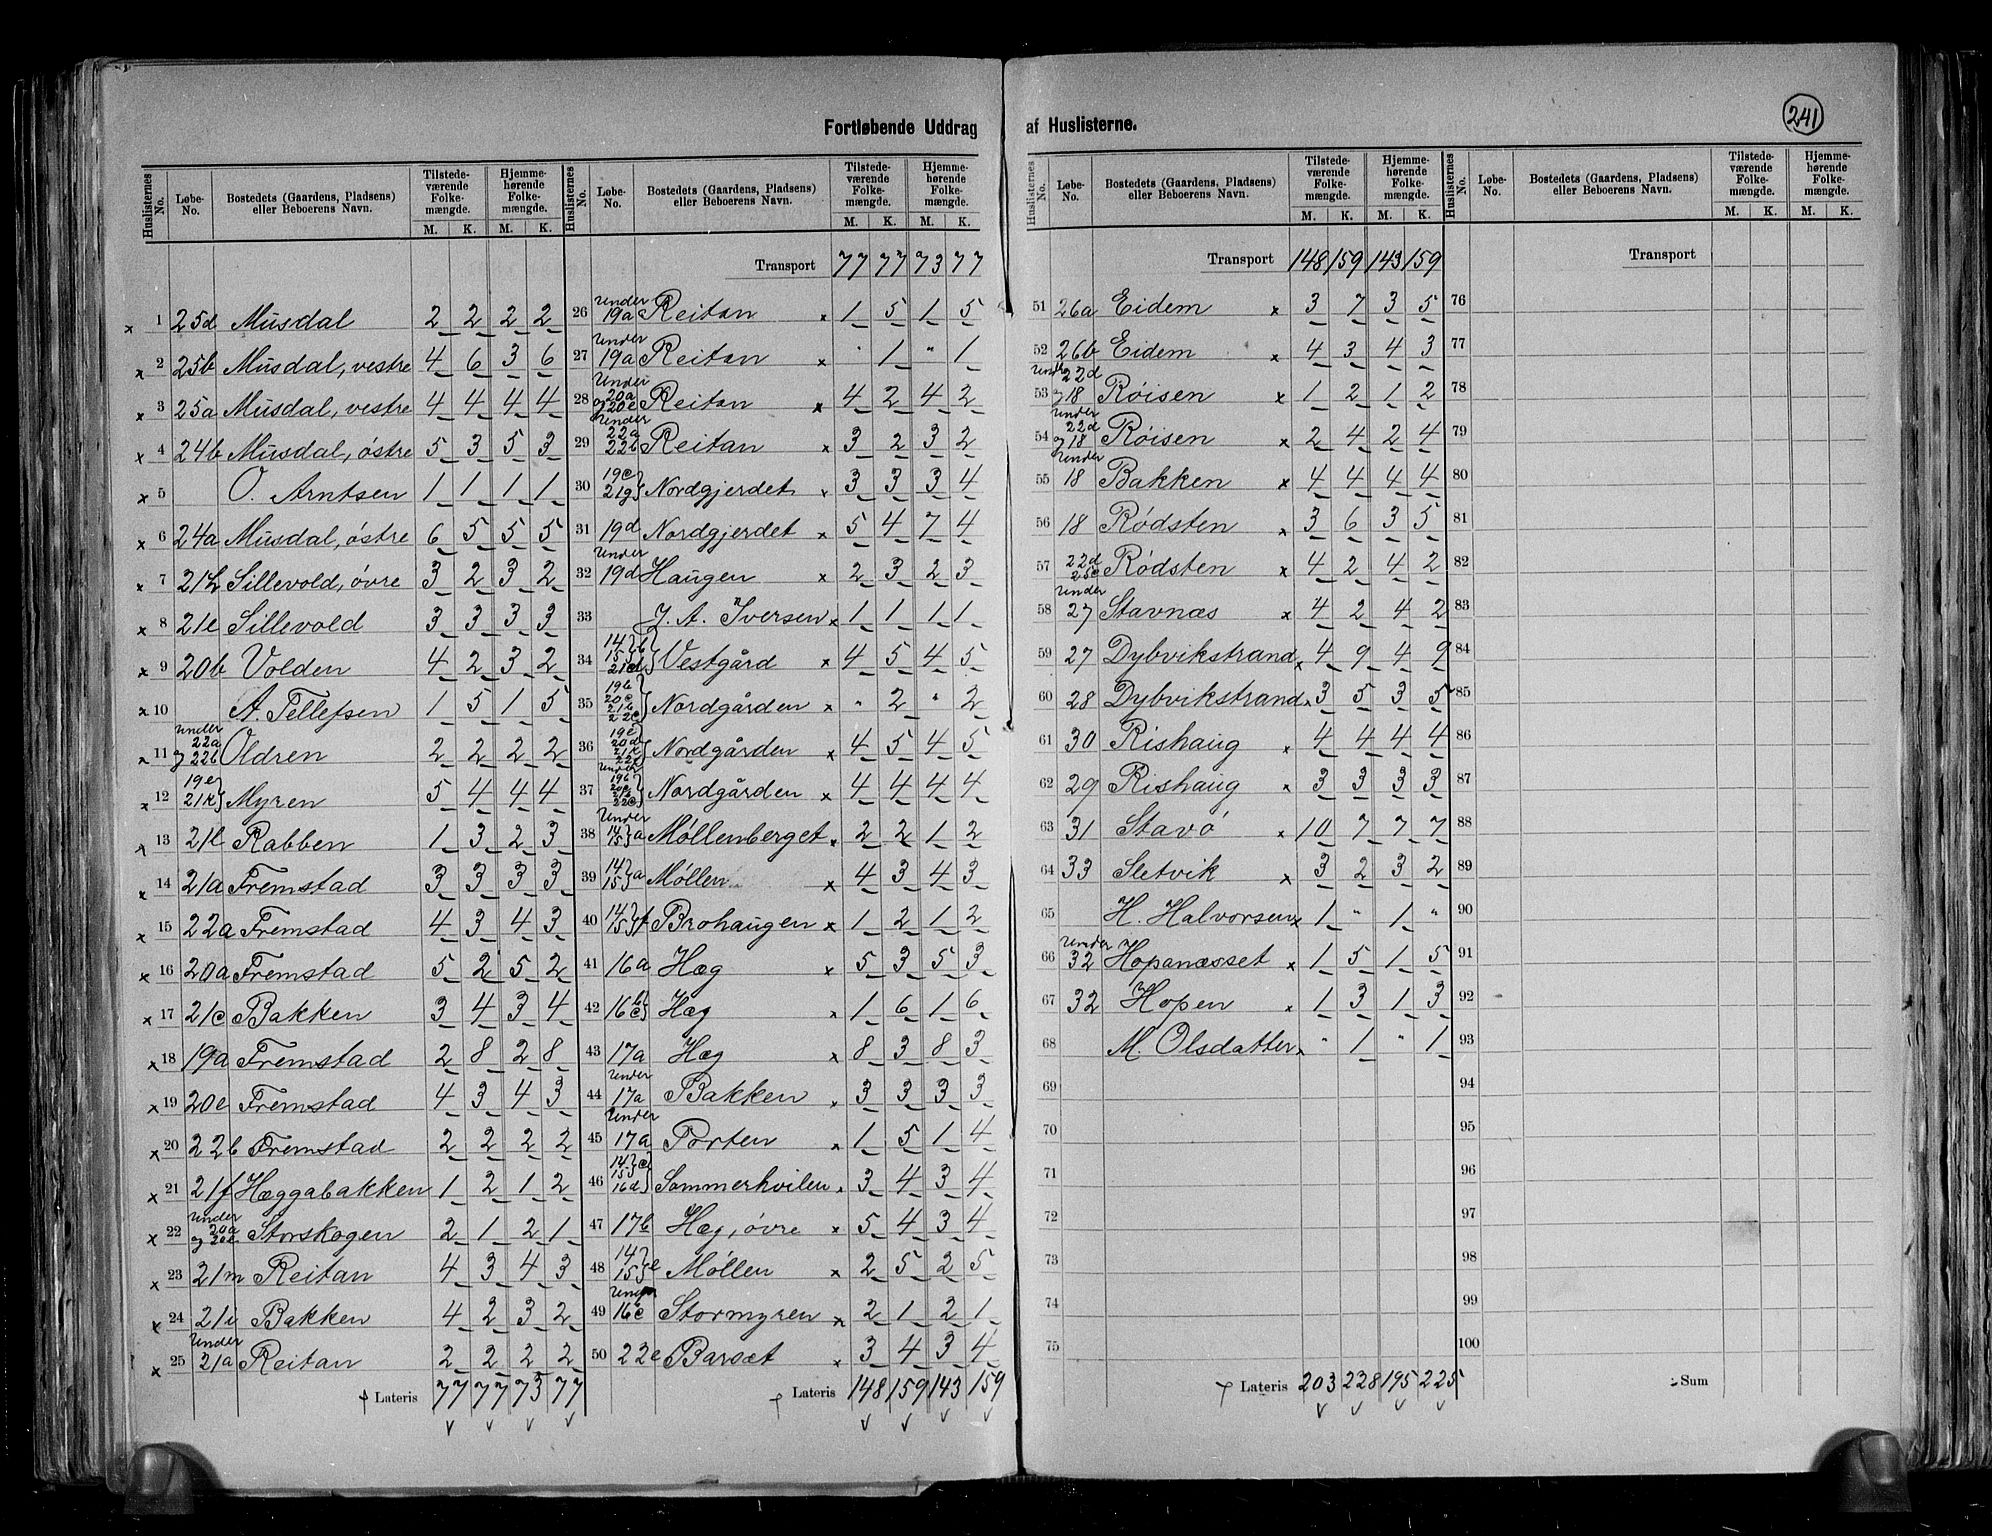 241
Fortløbende Uddrag af Huslisterne.
Huslisternes No. | Løbe-No. | Bostedets (Gaardens, Pladsens) eller Beboerens Navn. | Tilstede-værende Folke-mængde. M. K. | Hjemme-hørende Folke-mængde. M. K.
x 1 25d Musdal 2 2 2 2
x 2 25b Musdal, vestre 4 6 3 6
x 3 25a Musdal, vestre 4 4 4 4
x 4 24b Musdal, østre 5 3 5 3
x 5 O. Arntsen 1 1 1 1
x 6 24a Musdal, østre 6 5 5 5
x 7 21h Sillevold, øvre 3 2 3 2
x 8 21e Sillevold 3 3 3 3
x 9 20b Volden 4 2 3 2
x 10 A. Tellefsen 1 5 1 5
x 11 under 22a og 22b Oldren 2 2 2 2
x 12 19e 21k} Myren 5 4 4 4
x 13 21l Rabben 1 3 2 3
x 14 21a Fremstad 3 3 3 3
x 15 22a Fremstad 4 3 4 3
x 16 20a Fremstad 5 2 5 2
x 17 21c Bakken 3 4 3 4
x 18 19a Fremstad 2 8 2 8
x 19 20e Fremstad 4 3 4 3
x 20 22b Fremstad 2 2 2 2
x 21 21f Hæggabakken 1 2 1 2
x 22 under 20a og 20e Storskogen 2 1 2 1
x 23 21m Reitan 4 3 4 3
x 24 21i Bakken 4 2 3 2
x 25 under 21a Reitan 2 2 2 2
Lateris 77 77 73 77
Huslisternes No. | Løbe-No. | Bostedets (Gaardens, Pladsens) eller Beboerens Navn. | Tilstede-værende Folke-mængde. M. K. | Hjemme-hørende Folke-mængde. M. K.
Transport 77 77 73 77
26 under 19a Reitan x 1 5 1 5
27 under 19a Reitan x " 1 " 1
28 under 20a og 20e Reitan x 4 2 4 2
29 under 22a 22b Reitan x 3 2 3 2
30 19c 21g} Nordgjerdet x 3 3 3 4
31 19d Nordgjerdet x 5 4 7 4
32 under 19d Haugen x 2 3 2 3
33 J. A. Iversen x 1 1 1 1
34 14 15}b 21d} Vestgård x 4 5 4 5
35 19b 20c 21b 22c} Nordgården x " 2 " 2
36 20d Nordgården x 4 5 4 5
37 under 19b 22c} Nordgården x 4 4 4 4
38 under 14 15}a Møllenberget x 2 2 1 2
39 14 15}a Møllen x 4 3 4 3
40 14 15}f Brohaugen x 1 2 1 2
41 16a Hæg x 5 3 5 3
42 16b c} Hæg x 1 6 1 6
43 17a Hæg x 8 3 8 3
44 under 17a Bakken x 3 3 3 3
45 under 17a Porten x 1 5 1 4
46 14 15}c 16d} Sommerhvilen x 3 4 3 4
47 17b Hæg, øvre x 5 4 3 4
48 14 15}e Møllen x 2 5 2 5
49 under 16c Stormyren x 2 1 2 1
50 22e Barsæt x 3 4 3 4
Lateris 148 159 143 159
Huslisternes No. | Løbe-No. | Bostedets (Gaardens, Pladsens) eller Beboerens Navn. | Tilstede-værende Folke-mængde. M. K. | Hjemme-hørende Folke-mængde. M. K.
Transport 148 159 143 159
51 26a Eidem x 3 7 3 5
52 26b Eidem x 4 3 4 3
53 under 22d og 18 Røisen x 1 2 1 2
54 under 22d og 18 Røisen x 2 4 2 4
55 under 18 Bakken x 4 4 4 4
56 18 Rødsten x 3 6 3 5
57 22d 25c Rødsten x 4 2 4 2
58 under 27 Stavnæs x 4 2 4 2
59 27 Dybvikstrand x 4 9 4 9
60 28 Dybvikstrand x 3 5 3 5
61 30 Rishaug x 4 4 4 4
62 29 Rishaug x 3 3 3 3
63 31 Stavø x 10 7 7 7
64 33 Sletvik x 3 2 3 2
65 H. Halvorsen x 1 " 1 "
66 under 32 Hopanæsset x 1 5 1 5
67 32 Hopen x 1 3 1 3
68 M. Olsdatter x " 1 " 1
69
70
71
72
73
74
75
Lateris 203 228 195 225
Huslisternes No. | Løbe-No. | Bostedets (Gaardens, Pladsens) eller Beboerens Navn. | Tilstede-værende Folke-mængde. M. K. | Hjemme-hørende Folke-mængde. M. K.
Transport
76
77
78
79
80
81
82
83
84
85
86
87
88
89
90
91
92
93
94
95
96
97
98
99
100
Sum